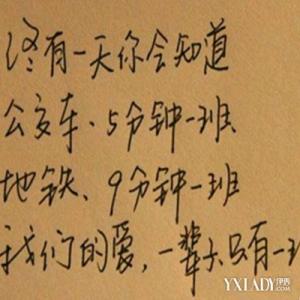 终有一天你会知道
公交车、5分钟一班
地铁、9分钟一班
我们的爱,一辈子只有一
YXLADY伊秀
.COM